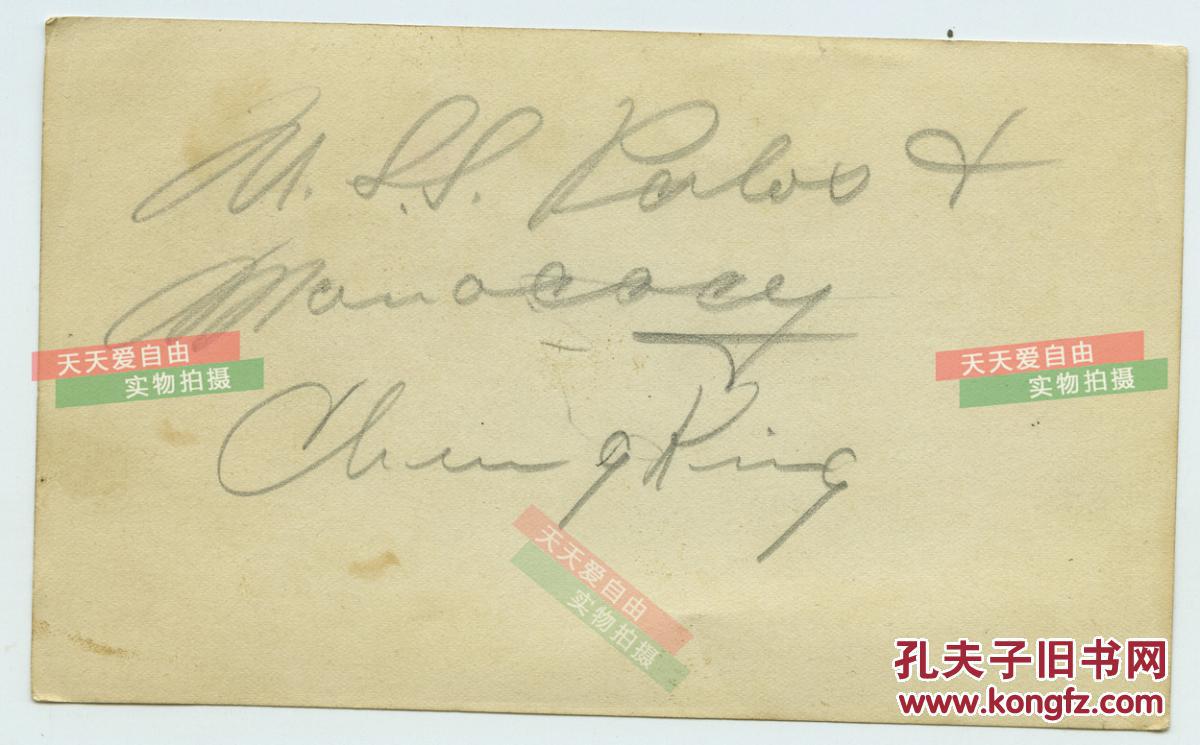 U. S. S. Palos &
Monocacy
Chung King
天天爱自由
实物拍摄
天天爱自由
实物拍摄
天天爱自由
实物拍摄
孔夫子旧书网
www.kongfz.com